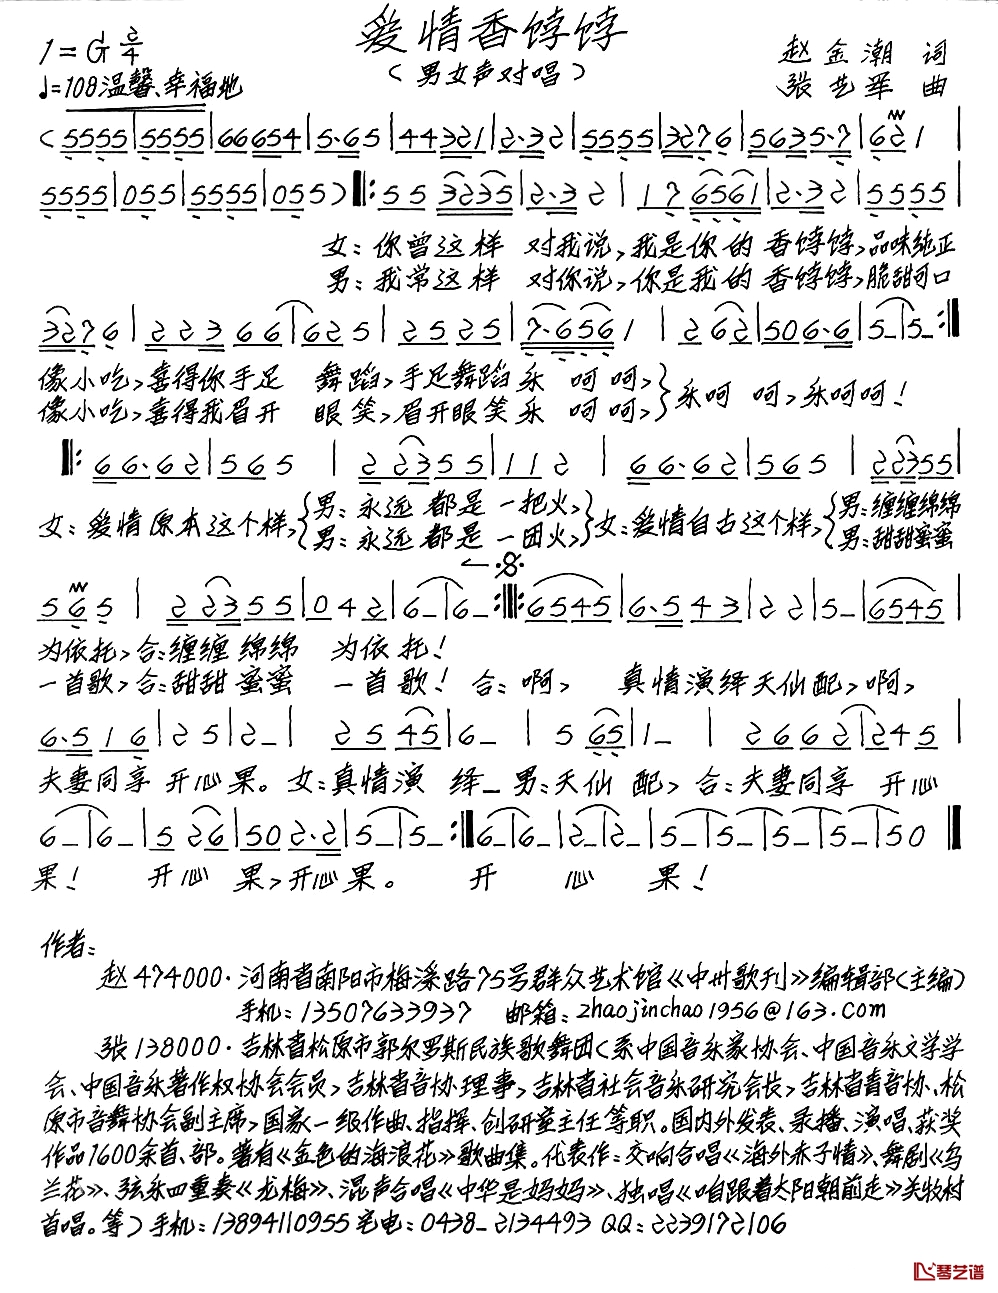 爱情香饽饽
（男女声对唱）
1=G 2/4
♩=108 温馨、幸福地
赵金潮 词
张艺军 曲
(5555|5555|66654|5·65|44321|2·32|5555|3276|5635·7|621|
5555|055|5555|055)|:55 3235|2·32|17 6561|2·32|5555|
女：你曾这样 对我说，我是你的香饽饽，品味纯正
男：我常这样 对你说，你是我的香饽饽，脆甜可口
3276|223 66|625|25 25|7·656 1|262|506·6|5_|5_:|
像小吃，喜得你手足 舞蹈，手足舞蹈乐 呵呵，
像小吃，喜得我眉开 眼笑，眉开眼笑乐 呵呵，
乐呵 呵，乐呵呵！
|:66·62|565|22355|112|66·62|565|22355|
女：爱情原本这个样，
男：永远 都是 一把火，
男：永远 都是 一团火，
女：爱情自古这个样，
男：缠缠绵绵
男：甜甜蜜蜜
565|22355|042|6_|6_:|||:6545|6·543|22|5_|6545|
为依托，合：缠缠 绵绵 为依托！
一首歌，合：甜甜 蜜蜜 一首歌！ 合：啊， 真情演绎天仙配，啊，
6·516|25|2_|25 45|6_|5 65|1_|2662|245|
夫妻同享 开心果。女：真情演 绎_ 男：天仙 配， 合：夫妻同享 开心
6_|6_|5 26|50 2·2|5_|5_:||6_|6_|2_|2_|5_|5_|5_|5_|50||
果！ 开心 果，开心果。 开 心 果！
作者：
赵 474000·河南省南阳市梅溪路75号群众艺术馆《中州歌刊》编辑部（主编）
手机：13507633937 邮箱：zhaojinchao1956@163.com
张 138000·吉林省松原市郭尔罗斯民族歌舞团（系中国音乐家协会、中国音乐文学学
会、中国音乐著作权协会会员，吉林省音协理事，吉林省社会音乐研究会长，吉林省青音协、松
原市音舞协会副主席，国家一级作曲、指挥、创研室主任等职。国内外发表、录播、演唱、获奖
作品1600余首、部。著有《金色的海浪花》歌曲集。代表作：交响合唱《海外赤子情》、舞剧《乌
兰花》、弦乐四重奏《龙梅》、混声合唱《中华是妈妈》、独唱《咱跟着太阳朝前走》关牧村
首唱。等）手机：13894110955 宅电：0438_2134493 QQ：2239172106
琴艺谱